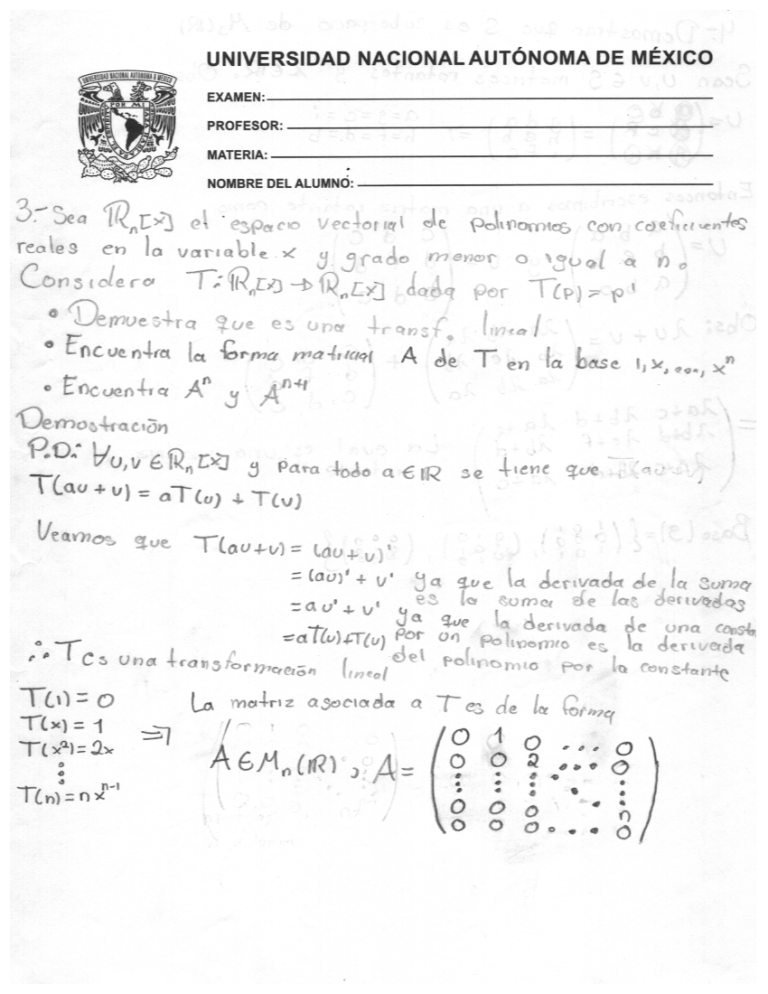 UNIVERSIDAD NACIONAL AUTÓNOMA DE MÉXICO
EXAMEN:
PROFESOR:
MATERIA:
NOMBRE DEL ALUMNO:
POR MI
3.- Sea ℝₙ[x] el espacio vectorial de polinomios con coeficientes
reales en la variable x y grado menor o igual a n.
Considera T: ℝₙ[x] → ℝₙ[x] dada por T(p) = p'
• Demuestra que es una transf. lineal
• Encuentra la forma matricial A de T en la base 1, x, ..., xⁿ
• Encuentra Aⁿ y Aⁿ⁺¹
Demostración
P.D: ∀u,v ∈ ℝₙ[x] y para todo a ∈ ℝ se tiene que
T(au + v) = aT(u) + T(v)
Veamos que T(au+v) = (au + v)'
= (au)' + v' ya que la derivada de la suma
es la suma de las derivadas
= au' + v' ya que la derivada de una const
= aT(u) + T(v) por un polinomio es la derivada
del polinomio por la constante
∴ T es una transformación lineal
T(1) = 0 La matriz asociada a T es de la forma
T(x) = 1
T(x²) = 2x ⇒ A ∈ Mₙ(ℝ), A =
⋮
T(n) = n xⁿ⁻¹
0 1 0 ... 0
0 0 2 ... 0
⋮ ⋮ ⋮ ⋱ ⋮
0 0 0 n
0 0 0 ... 0